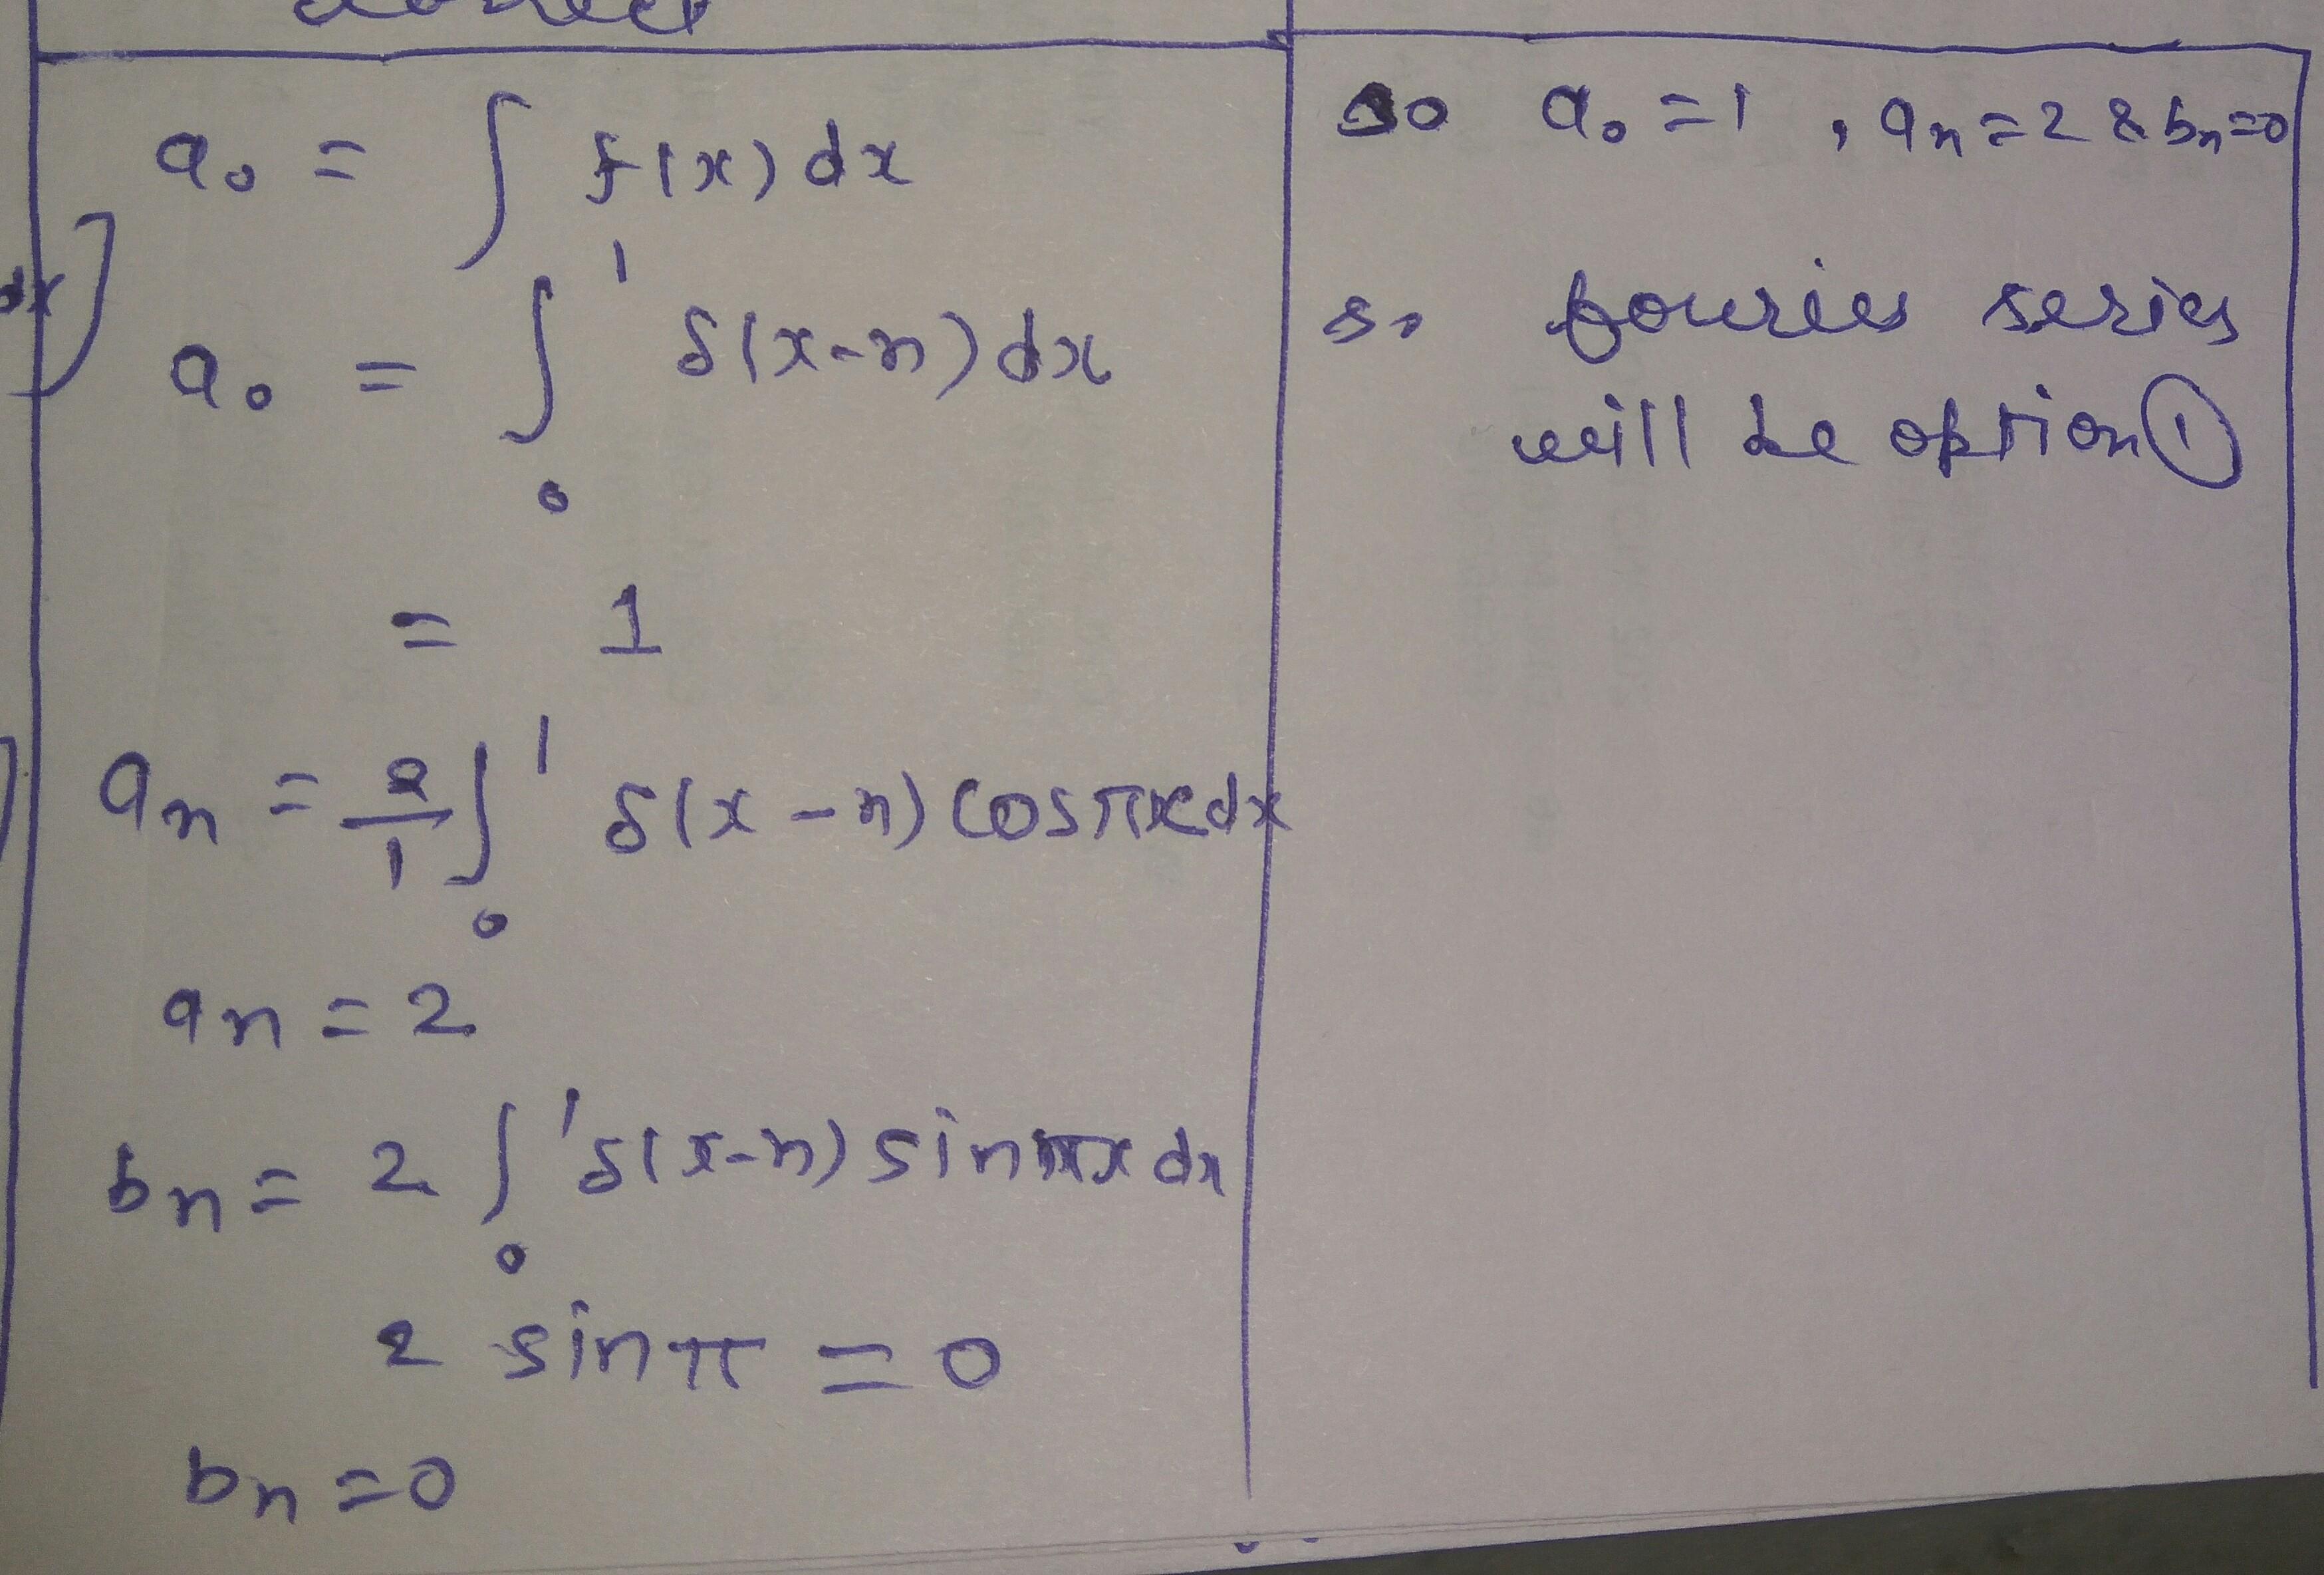 a₀ = ∫ f(x) dx
dx]
a₀ = ∫₀¹ δ(x-n) dx
= 1
aₙ = 2/1 ∫₀¹ δ(x-n) cosπx dx
an = 2
bn = 2 ∫₀¹ δ(x-n) sin πx dx
2 sin π = 0
bn = 0
so a₀ = 1 , an = 2 & bn = 0
so fourier series
will be option ①